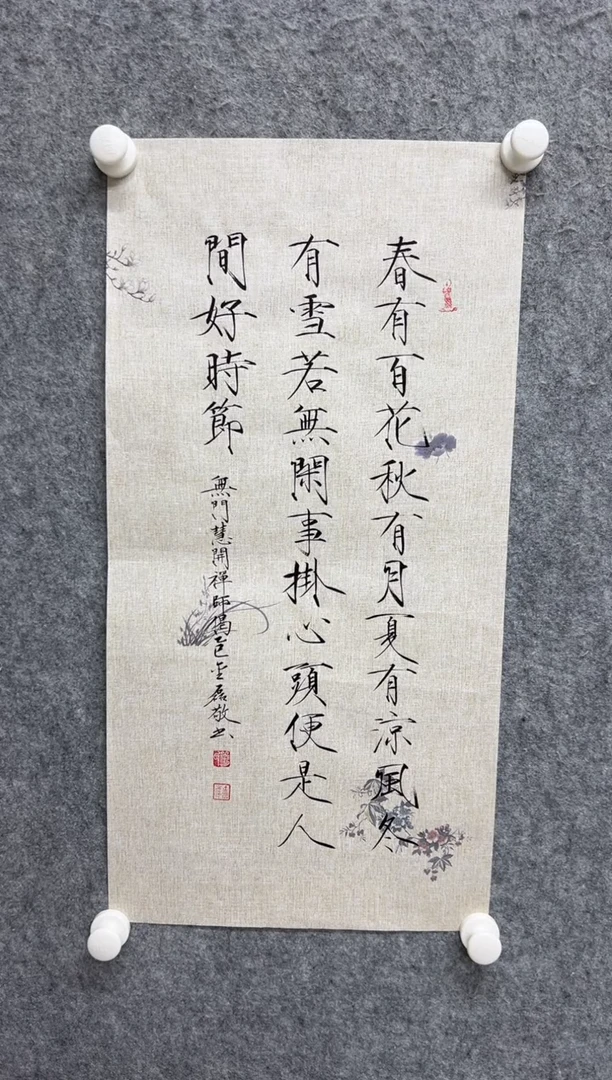 春有百花秋有月夏有涼風冬
有雪若無閑事掛心頭便是人
間好時節
無門慧開禪師偈
磊敬書